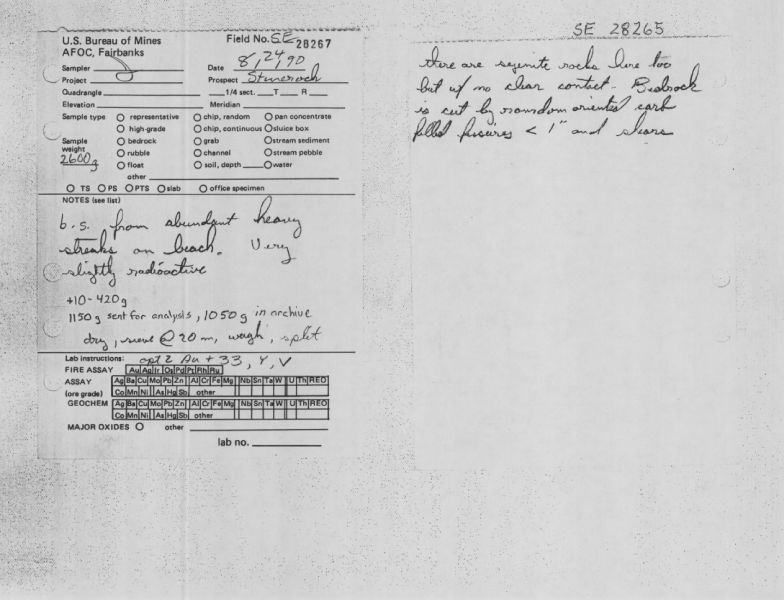 U.S. Bureau of Mines
AFOC, Fairbanks
Field No. SE 28267
Sampler
Date 8/24/90
Project
Prospect
Quadrangle 1/4 sect. T R
Elevation Meridian
Sample type
representative chip, random pan concentrate
high-grade chip, continuous sluice box
Sample weight 2600g
bedrock grab stream sediment
rubble channel stream pebble
float soil, depth water
other
TS PS PTS slab office specimen
NOTES (see list)
b.s. from abundant heavy
streaks on beach. Very
slightly radioactive
+10-420g
1150g sent for analysis, 1050g in archive
dry, sieve @ 20 m, weigh, split
Lab instructions: opt 2 Au + 33, Y, V
FIRE ASSAY Au Ag Ir Os Pd Pt Rh Ru
ASSAY Ag Ba Cu Mo Pb Zn Al Cr Fe Mg Nb Sn Ta W U Th REO
(ore grade) Co Mn Ni As Hg Sb other
GEOCHEM Ag Ba Cu Mo Pb Zn Al Cr Fe Mg Nb Sn Ta W U Th REO
Co Mn Ni As Hg Sb other
MAJOR OXIDES other
lab no.
SE 28265
there are syenite rocks here too
but w/ no clear contact. Bedrock
is cut by random oriented carb
filled fissures < 1" and shears